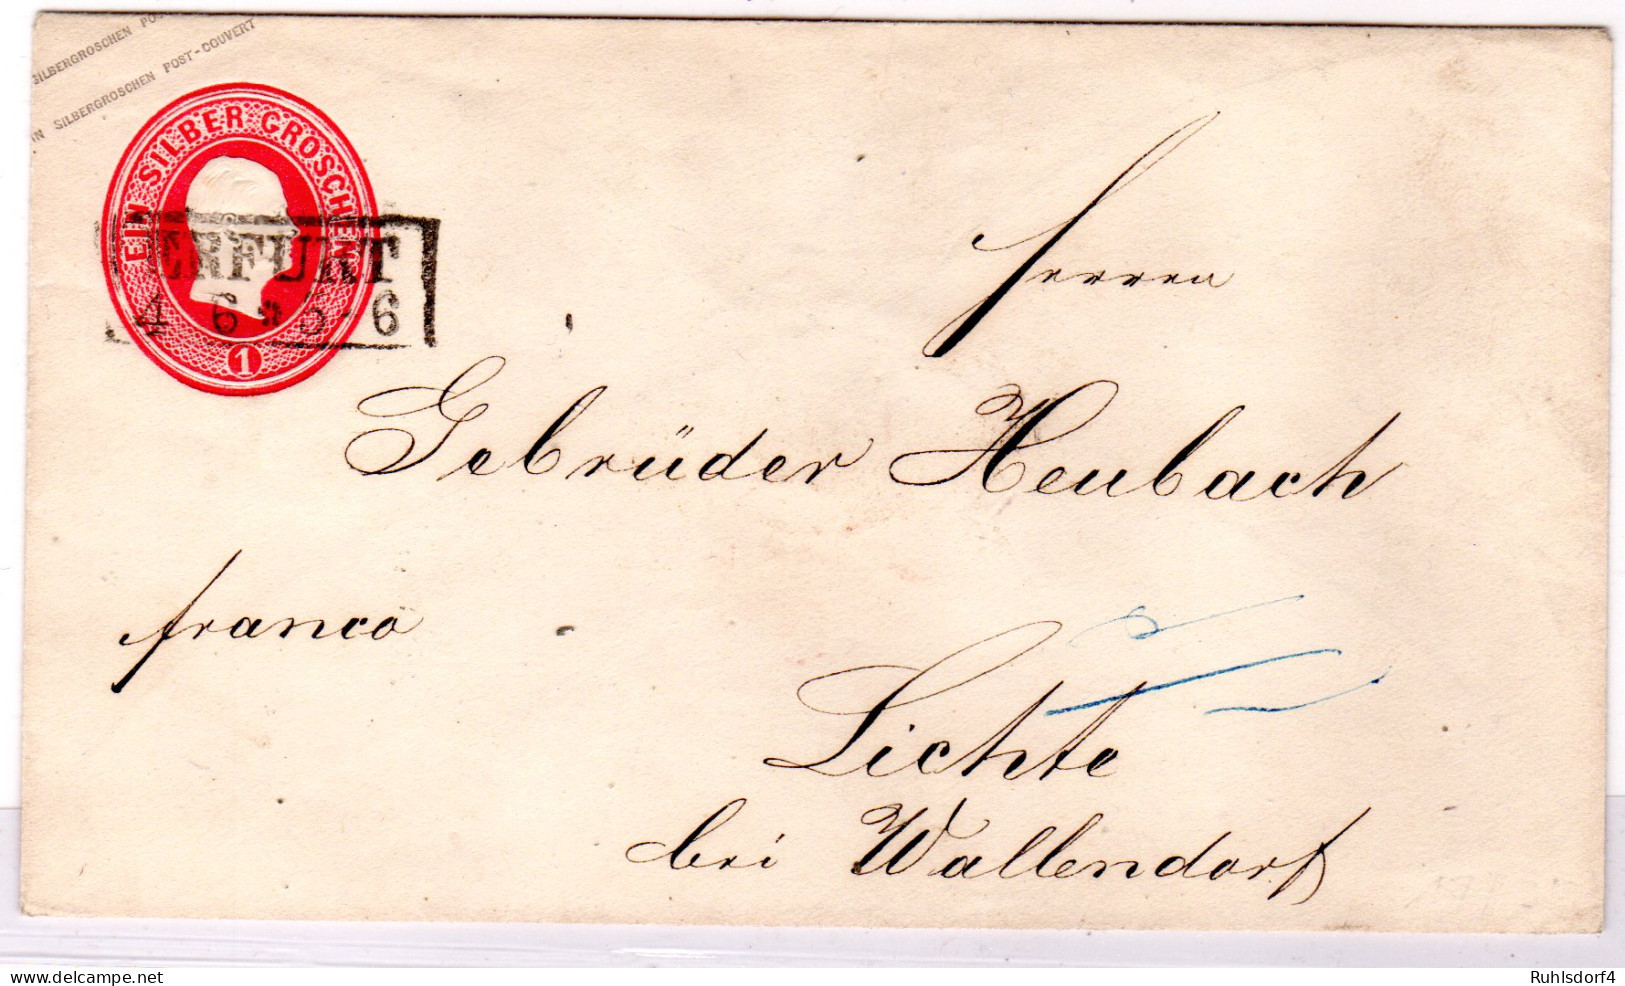 SILBERGROSCHEN POS
IN SILBERGROSCHEN POST-COUVERT
EIN SILBER GROSCHEN
1
ERFURT
4 6 * 5-6
Herren
Gebrüder Heubach
franco
Lichte
bei Wallendorf
delcampe.net
Ruhlsdorf4